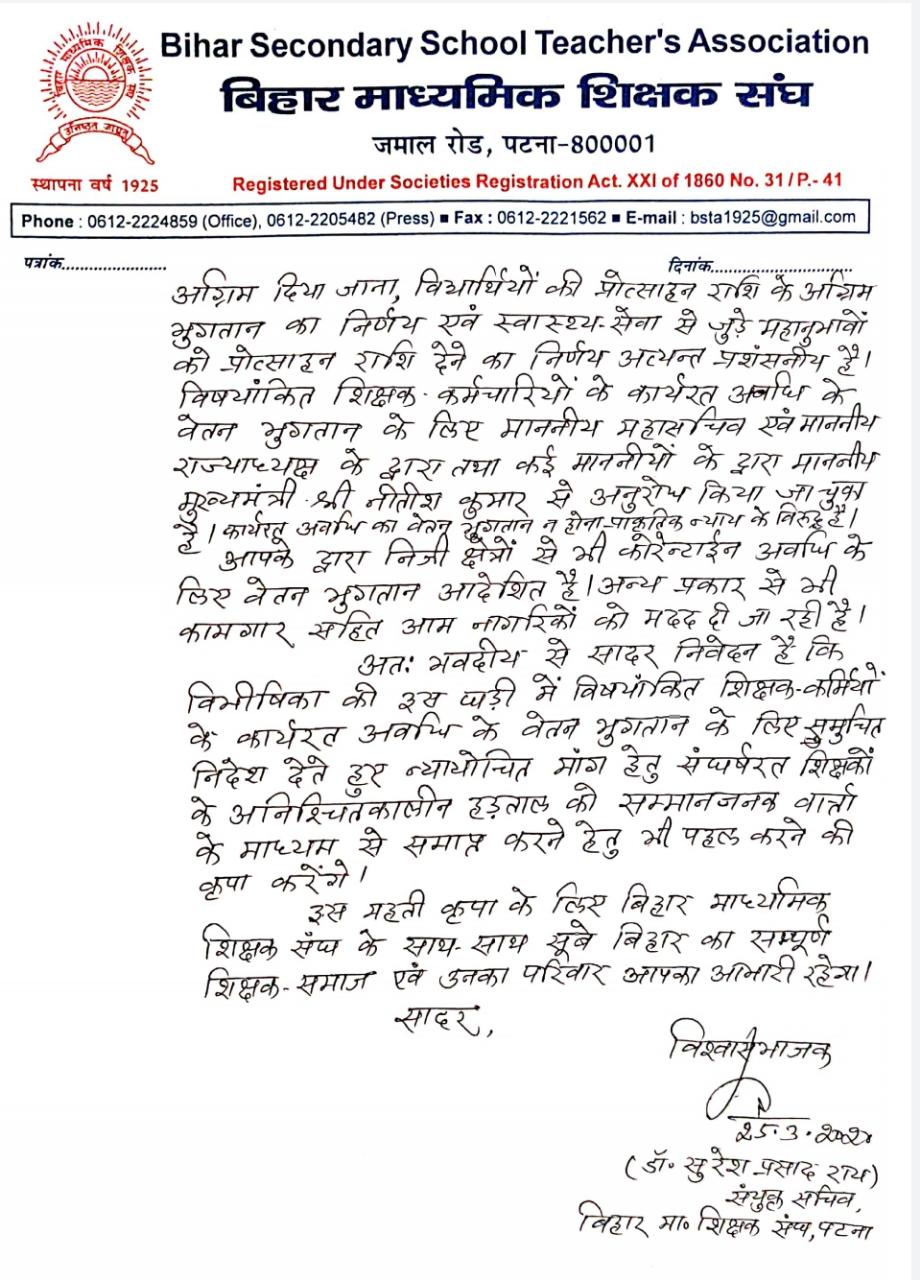 Bihar Secondary School Teacher's Association
बिहार माध्यमिक शिक्षक संघ
जमाल रोड, पटना-800001
स्थापना वर्ष 1925
Registered Under Societies Registration Act. XXI of 1860 No. 31/P.- 41
Phone : 0612-2224859 (Office), 0612-2205482 (Press) ■ Fax : 0612-2221562 ■ E-mail : bsta1925@gmail.com
पत्रांक....................... दिनांक.............................
अग्रिम दिया जाना, विद्यार्थियों की प्रोत्साहन राशि के अग्रिम
भुगतान का निर्णय एवं स्वास्थ्य-सेवा से जुड़े महानुभावों
को प्रोत्साहन राशि देने का निर्णय अत्यन्त प्रशंसनीय है।
विषयांकित शिक्षक-कर्मचारियों के कार्यरत अवधि के
वेतन भुगतान के लिए माननीय महासचिव एवं माननीय
राज्याध्यक्ष के द्वारा तथा कई माननीयों के द्वारा माननीय
मुख्यमंत्री श्री नीतीश कुमार से अनुरोध किया जा चुका
है। कार्यरत अवधि का वेतन भुगतान न होना प्राकृतिक न्याय के विरुद्ध है।
आपके द्वारा निजी क्षेत्रों से भी कोरेन्टाईन अवधि के
लिए वेतन भुगतान आदेशित है। अन्य प्रकार से भी
कामगार सहित आम नागरिकों को मदद दी जा रही है।
अतः भवदीय से सादर निवेदन है कि
विभीषिका की इस घड़ी में विषयांकित शिक्षक-कर्मियों
के कार्यरत अवधि के वेतन भुगतान के लिए सुमुचित
निदेश देते हुए न्यायोचित मांग हेतु संघर्षरत शिक्षकों
के अनिश्चितकालीन हड़ताल को सम्मानजनक वार्त्ता
के माध्यम से समाप्त करने हेतु भी पहल करने की
कृपा करेंगे।
इस महती कृपा के लिए बिहार माध्यमिक
शिक्षक संघ के साथ-साथ सूबे बिहार का सम्पूर्ण
शिक्षक-समाज एवं उनका परिवार आपका आभारी रहेगा।
सादर,
विश्वासभाजक
25.3.2020
(डॉ. सुरेश प्रसाद राय)
संयुक्त सचिव,
बिहार मा० शिक्षक संघ, पटना